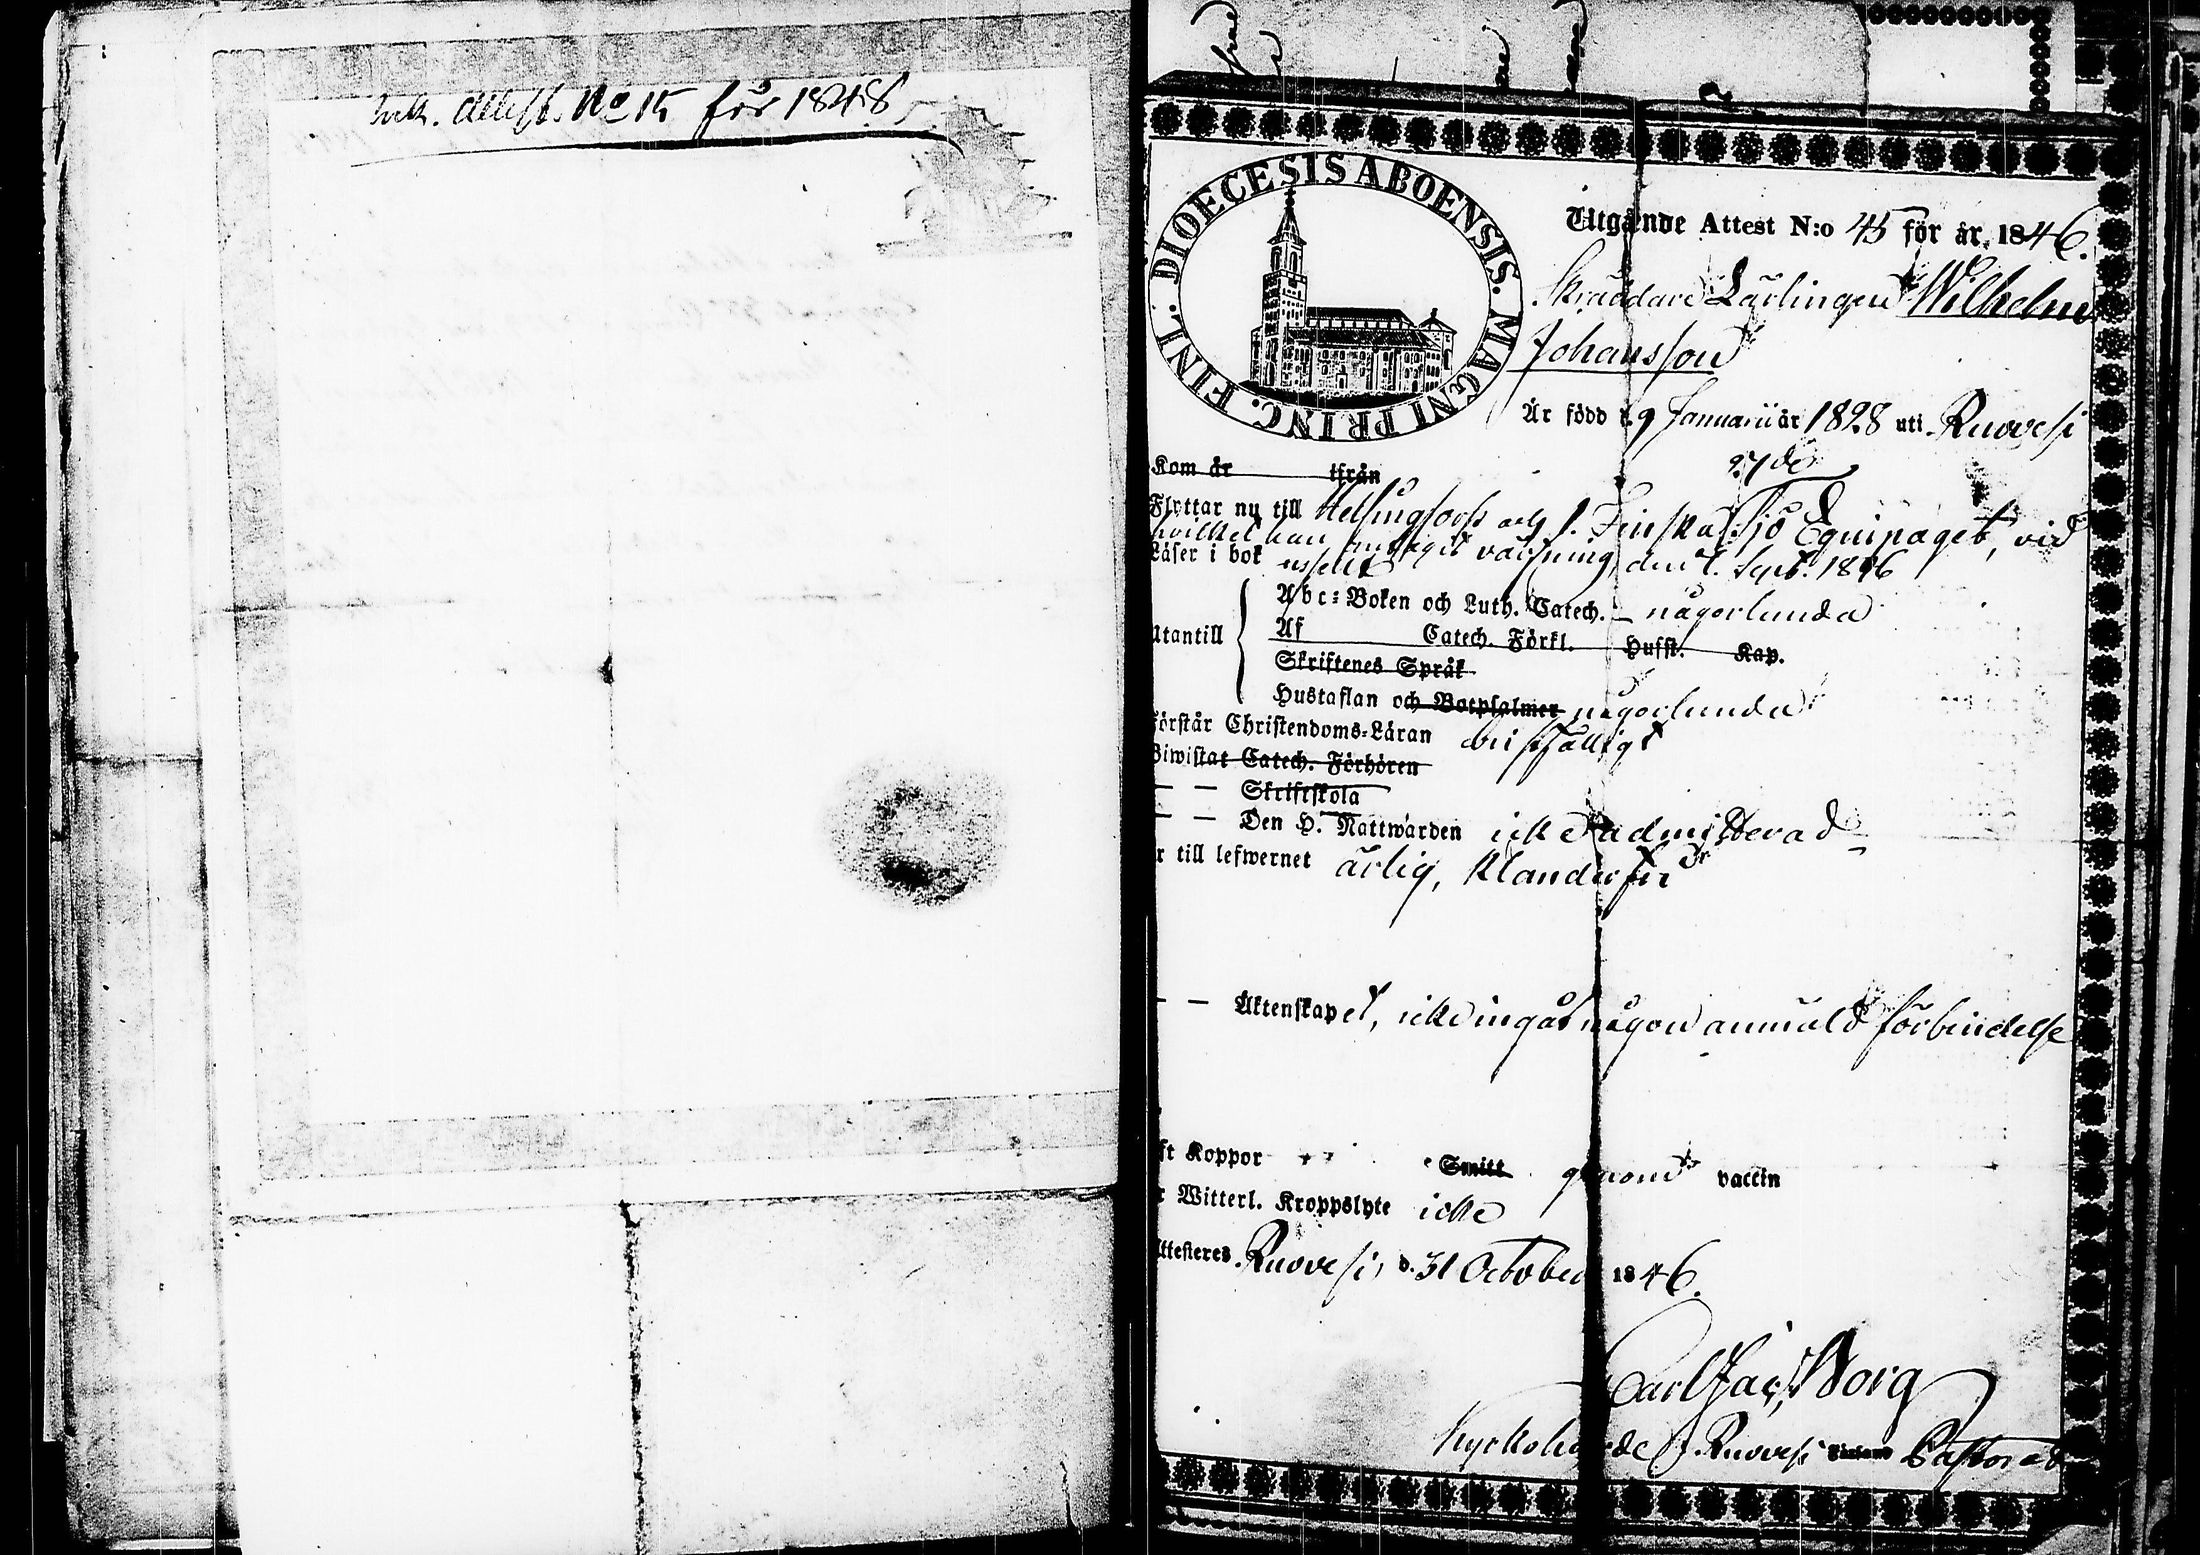 Ink. Attest. No 15 för 1848
DIOECESIS ABOENSIS. MAGNI PRINC. FINL.
Utgående Attest N:o 45 för år 1846.
Skräddare Lärlingen Wilhelm
Johansson
Är född d. 9 Januarii år 1828 uti Ruovesi
Kom år ifrån
Flyttar nu till Helsingfors och f. Finska Sjö Equipaget, vid
hvilket han antagit värfning, den 7. Sept. 1846
Läser i bok
Abc-Boken och Luth. Catech. någorlunda
utantill
Af Catech. Förkl. Hufst. Kap.
Skriftenes Språk
Hustaflan och Botpsalmer någorlunda
Förstår Christendoms-Läran
Biwistat Catech. Förhören
— — Skriftskola
— — Den H. Nattwarden icke admitterad
r till lefwernet ärlig, klanderfri
— — Äktenskapet, icke ingått någon anmäld förbindelse
ft Koppor Smitt genom vaccin
r Witterl. Kroppslyte icke
Attesteres Ruovesi, d. 31 October 1846.
Carl Jac. Borg
Kyrkoherde i Ruovesi Pastorat